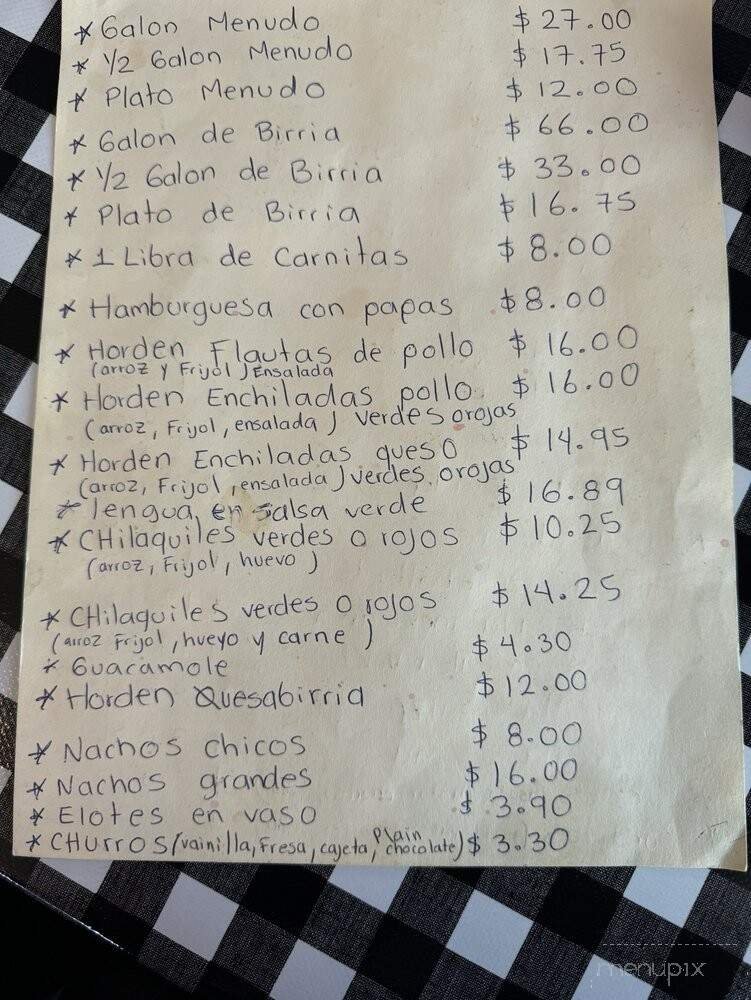 * Galon Menudo $27.00
* 1/2 Galon Menudo $17.75
* Plato Menudo $12.00
* Galon de Birria $66.00
* 1/2 Galon de Birria $33.00
* Plato de Birria $16.75
* 1 Libra de Carnitas $8.00
* Hamburguesa con papas $8.00
* Horden Flautas de pollo $16.00
(arroz y Frijol) Ensalada
* Horden Enchiladas pollo $16.00
(arroz, Frijol, ensalada) verdes orojas
* Horden Enchiladas queso $14.95
(arroz, Frijol, ensalada) verdes orojas
* lengua en salsa verde $16.89
* CHilaquiles verdes o rojos $10.25
(arroz, Frijol, huevo)
* CHilaquiles verdes o rojos $14.25
(arroz Frijol, huevo y carne)
* Guacamole $4.30
* Horden Quesabirria $12.00
* Nachos chicos $8.00
* Nachos grandes $16.00
* Elotes en vaso $3.90
* CHurros (vainilla, Fresa, cajeta, Plain chocolate) $3.30
menupix